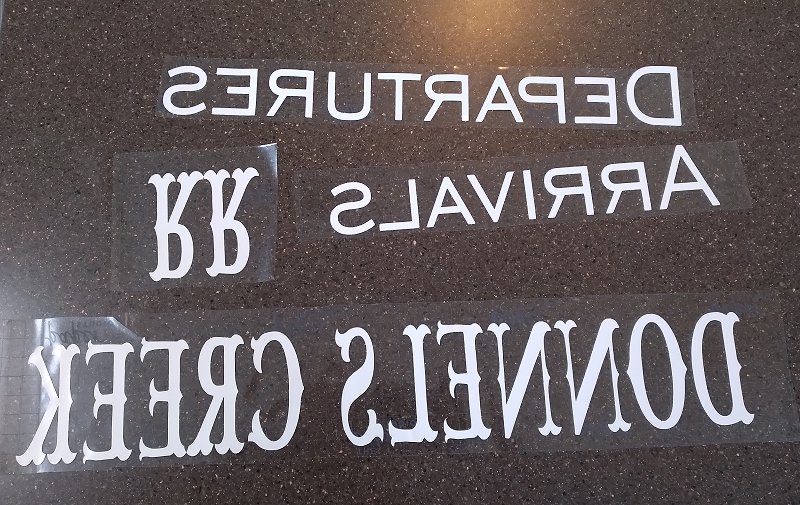 DEPARTURES
ARRIVALS
RR
DONNELS CREEK